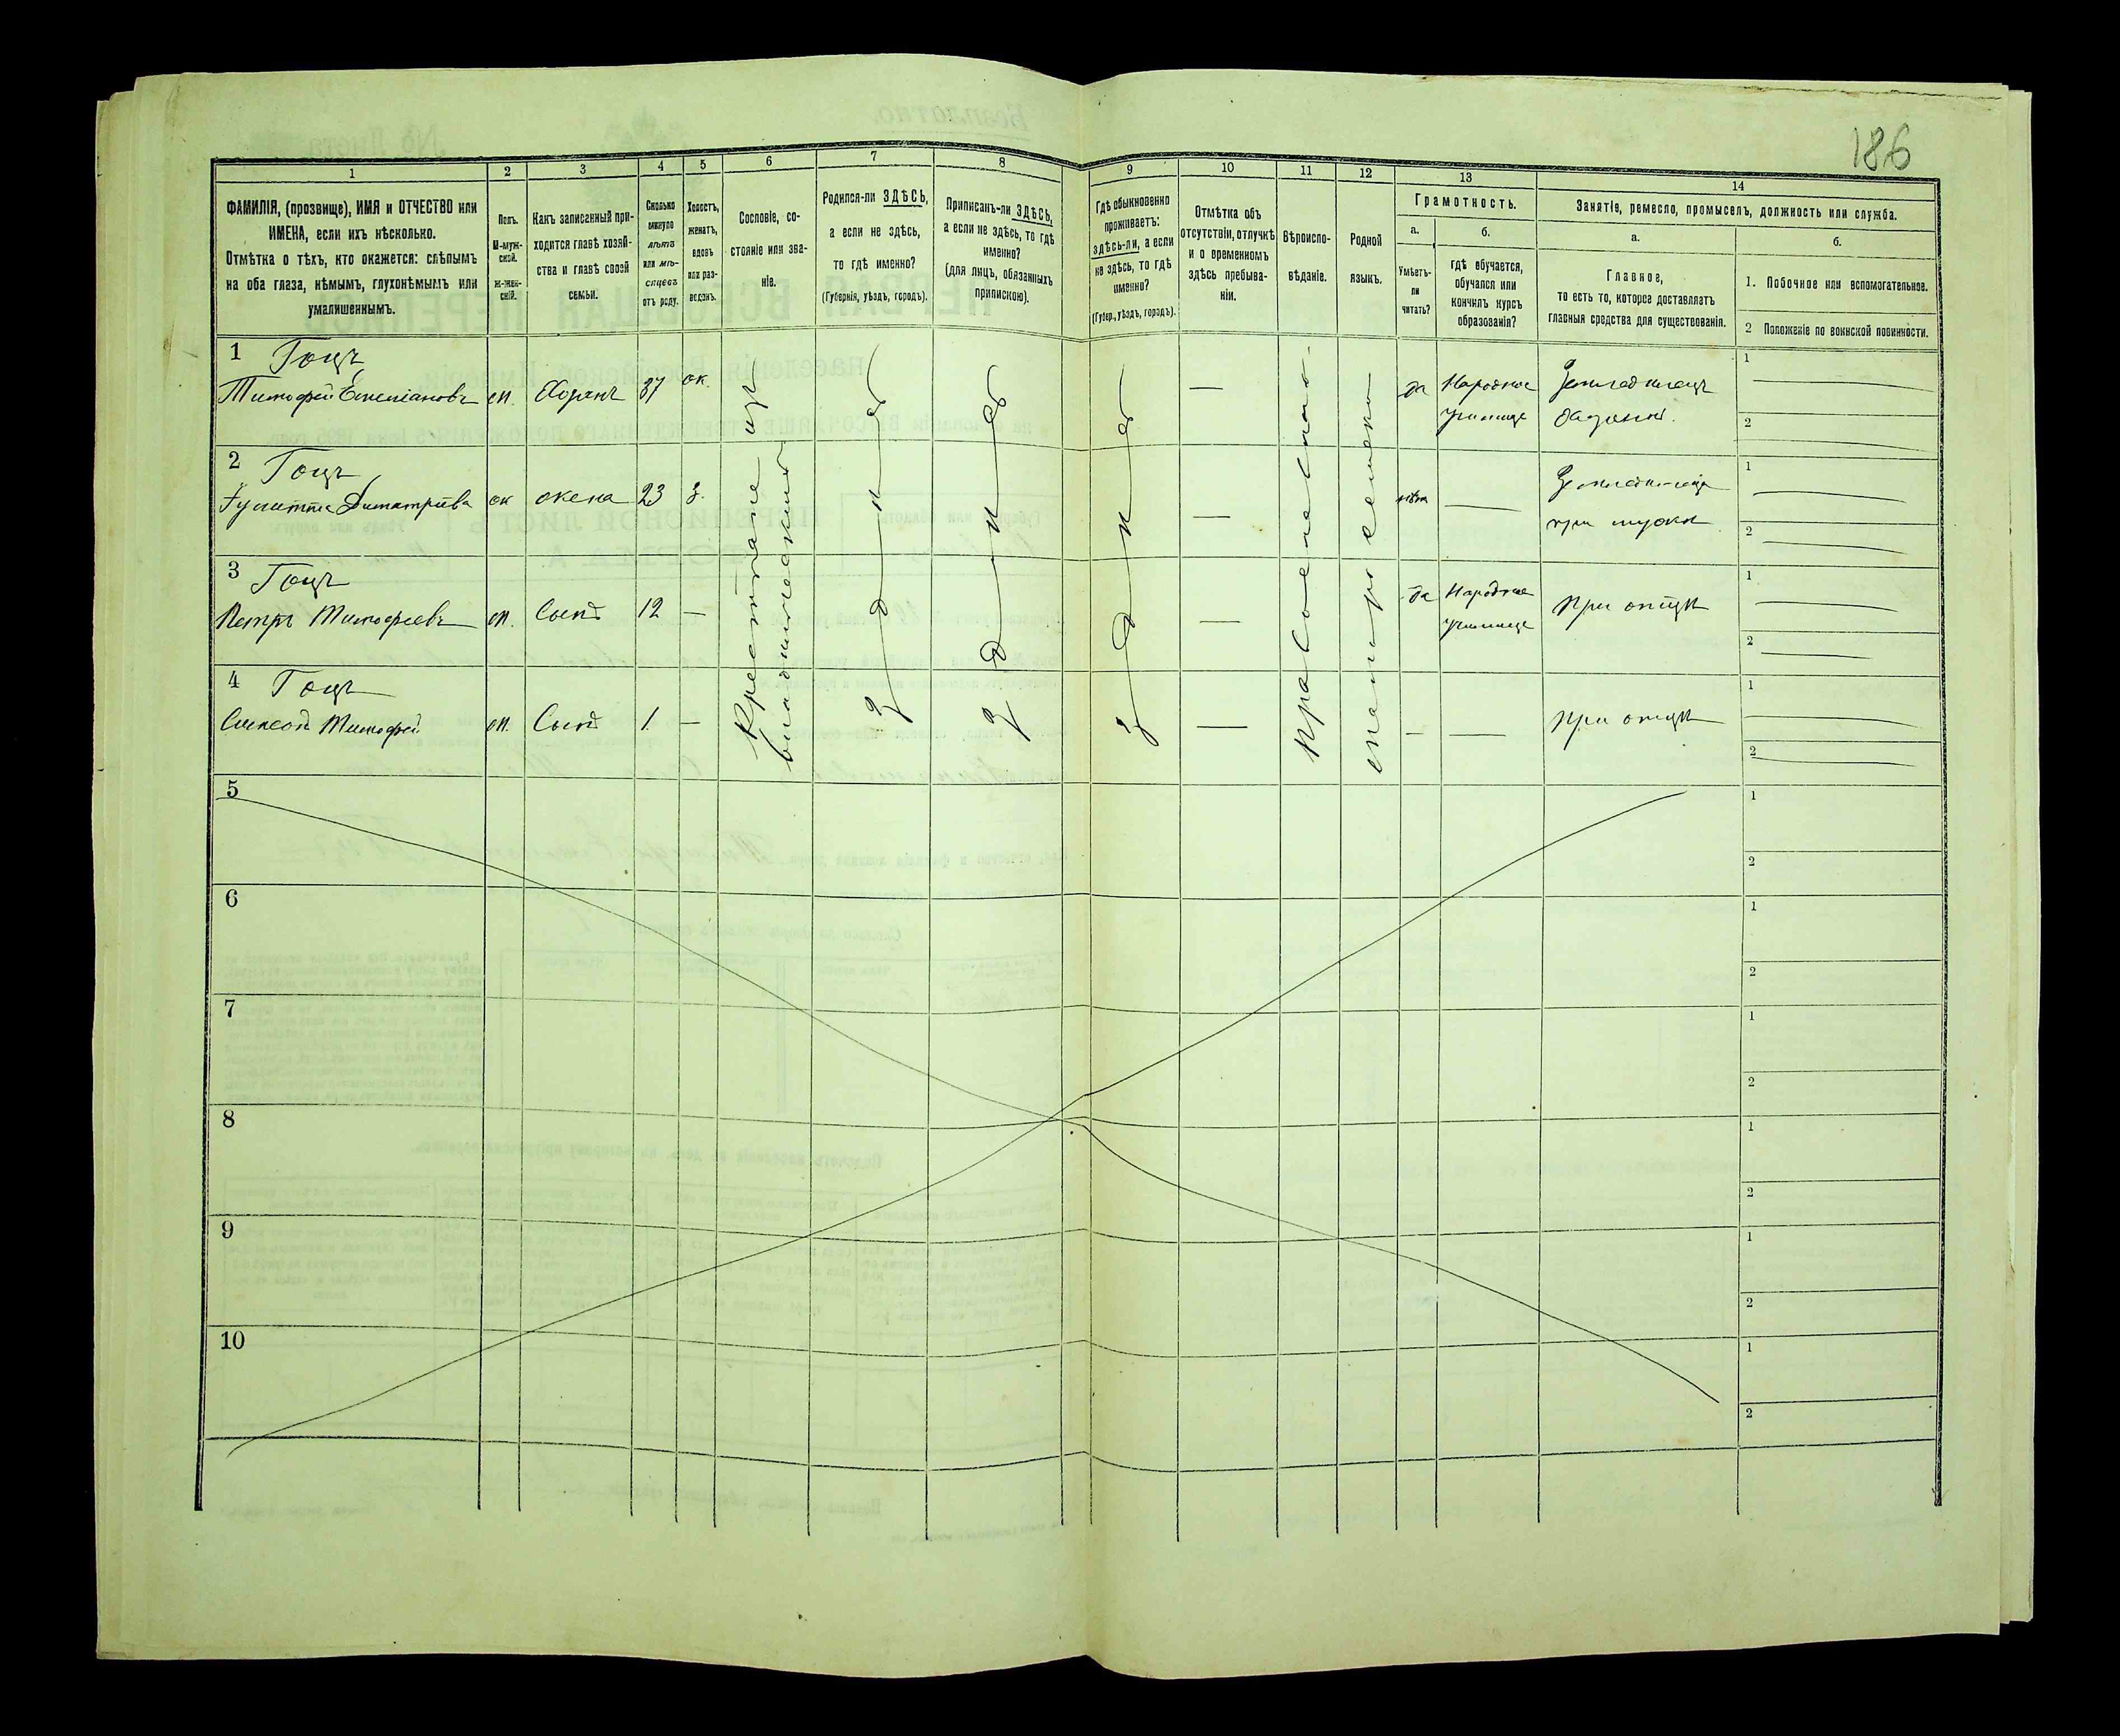 186
1
2
3
4
5
6
7
8
9
10
11
12
13
14
ФАМИЛІЯ, (прозвище), ИМЯ и ОТЧЕСТВО или
ИМЕНА, если ихъ нѣсколько.
Отмѣтка о тѣхъ, кто окажется: слѣпымъ
на оба глаза, нѣмымъ, глухонѣмымъ или
умалишеннымъ.
Полъ.
М-муж-
ской.
Ж-жен-
скій.
Какъ записанный при-
ходится главѣ хозяй-
ства и главѣ своей
семьи.
Сколько
минуло
лѣтъ
или мѣ-
сяцевъ
отъ роду.
Холостъ,
женатъ,
вдовъ
или раз-
веденъ.
Сословіе, со-
стояніе или зва-
ніе.
Родился-ли ЗДѢСЬ,
а если не здѣсь,
то гдѣ именно?
(Губернія, уѣздъ, городъ).
Приписанъ-ли ЗДѢСЬ,
а если не здѣсь, то гдѣ
именно?
(для лицъ, обязанныхъ
припискою).
Гдѣ обыкновенно
проживаетъ:
здѣсь-ли, а если
не здѣсь, то гдѣ
именно?
(Губер., уѣздъ, городъ).
Отмѣтка объ
отсутствіи, отлучкѣ
и о временномъ
здѣсь пребыва-
ніи.
Вѣроиспо-
вѣданіе.
Родной
языкъ.
Грамотность.
а.
Умѣетъ-
ли
читать?
б.
гдѣ обучается,
обучался или
кончилъ курсъ
образованія?
Занятіе, ремесло, промыселъ, должность или служба.
а.
Главное,
то есть то, которое доставляетъ
главныя средства для существованія.
б.
1. Побочное или вспомогательное.
2 Положеніе по воинской повинности.
1 Гоцъ
Тимофей Емеліановъ м. Хозяинъ 37 ж. — да Народное
училище
Земледѣлецъ
хозяинъ.
1
2
2 Гоцъ
Димитріева ж жена 23 з. — нѣтъ —
Земледѣлица
при мужѣ
1
2
3 Гоцъ
Петръ Тимофеевъ м. Сынъ 12 — — да Народное
училище
при отцѣ
1
2
4 Гоцъ
Симеонъ Тимофей м. Сынъ 1 — — — —
при отцѣ
1
2
Крестьяне изъ
владѣльческихъ
здѣсь
здѣсь
здѣсь
православное
малорусскій
5
1
2
6
1
2
7
1
2
8
1
2
9
1
2
10
1
2